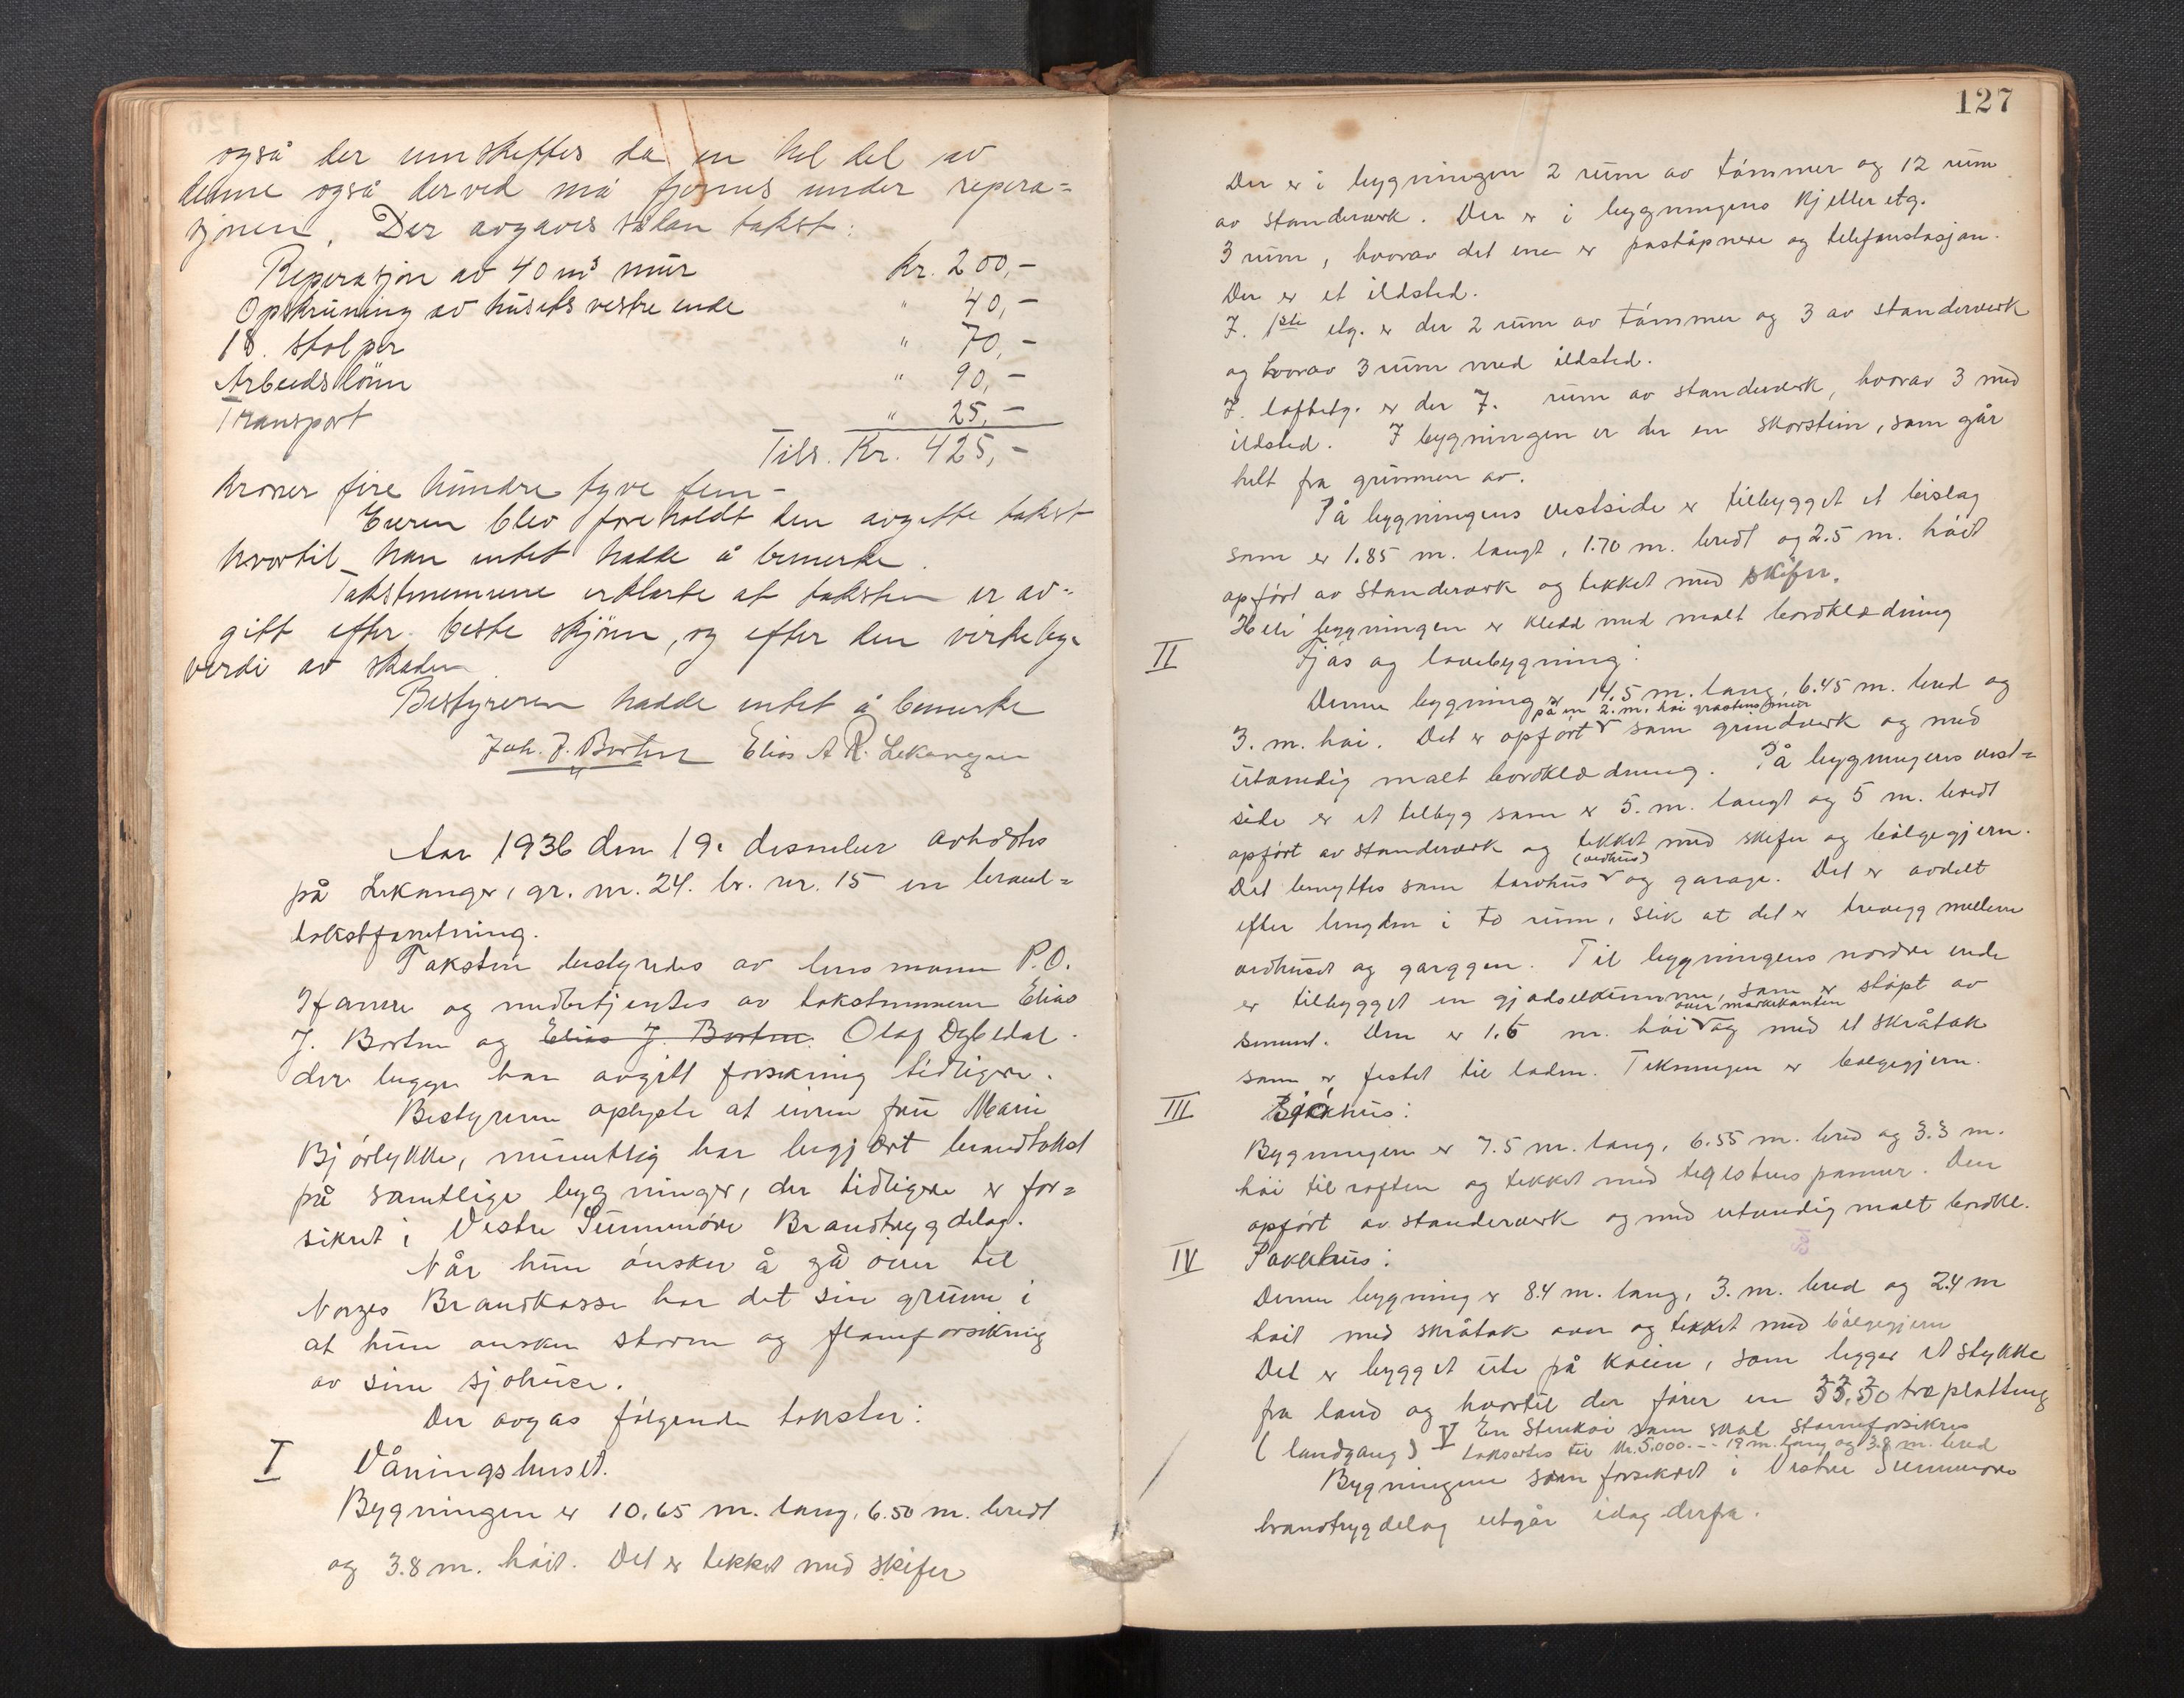 også der umskeftes da en hel del av
denne også derved må fjernes under repera=
sjonen. Der avgaves sådan takst:
Reperasjon av 40 m³ mur Kr. 200,-
Opskruning av husets vestre ende " 40,-
18. stolper " 70,-
Arbeidslönn " 90,-
Transport " 25,-
Tils. Kr. 425,-
kroner fire hundre tyve fem -
Eieren blev foreholdt den avgitte takst
hvortil han intet hadde å bemerke.
Takstmennene erklærte at taksten er av=
gitt efter beste skjönn, og efter den virkelige
verdi av skaden
Bestyreren hadde intet å bemerke
Joh. J. Bortne Elias A R. Lekanger
Aar 1936 den 19. desember avholdtes
på Lekanger, gr. nr. 24. br. nr. 15 en brand=
takstforretning.
Taksten bestyredes av lensmann P.O.
Hamre og medbetjentes av takstmennene Elias
J. Bortne og Elias J. Bortne Olaf Dybedal.
der begge har avgitt forsikring tidligere.
Bestyreren oplyste at eieren fru Marie
Bjørlykke, muntlig har begjært brandtakst
på samtlige bygninger, der tidligere er for=
sikret i Vestre Sunnmöre Brandtrygdelag.
Når hun ónsker å gå over til
Norges Brandkasse har det sin grunn i
at hun onsker storm og flomforsikring
av sine sjohuse.
Der avgas følgende takster:
I Våningshuset.
Bygningen er 10.65 m. lang, 6.50 m. bredt
og 3.8 m. hóit. Det er tekket med skifer
127
Der er i bygningen 2 rum av tómmer og 12 rum
av standerverk. Der er i bygningens kjelleretg.
3 rum, hvorav det ene er poståpneri og telefonstasjon.
Der er et ildsted.
I. 1ste etg. er der 2 rum av tómmer og 3 av standerverk
og hvorav 3 rum med ildsted.
I. loftetg. er der 7. rum av standerverk, hvorav 3 med
ildsted. I bygningen er der en skorstein, som går
helt fra grunnen av.
På bygningens vestside er tilbygget et bislag
som er 1.85 m. langt, 1.70 m. bredt og 2.5 m. hóit
opfórt av standerverk og tekket med skifer.
Hele bygningen er kledd med malt bordklædning
II Fjós og lóebygning:
Denne bygning er 14.5 m. lang, 6.45 m. bred og
på en 2. m. hói gråstens mur
3. m. hói. Det er opfórt som grindverk og med
utvendig malt bordklædning. På bygningens vest=
side er et tilbyg som er 5. m. langt og 5 m. bredt
opfórt av standerverk og tekket med skifer og bólgegjern.
(vedhus)
Det benyttes som torvhus og garage. Det er avdelt
efter lengden i to rum, slik at det er trevegg mellem
vedhuset og garagen. Til bygningens nordre ende
er tilbygget en gjødselkum, som er stópt av
over markkanten
sement. Den er 1.6 m. hói og med et skråtak
som er festet til laden. Tekningen er bolgegjern.
III Sjóhus:
Bygningen er 7.5 m. lang, 6.55 m. bred og 3.3 m.
hói til raften og tekket med teglstens panner. Den
opfórt av standerverk og med utvendig malt bordkl.
IV Pakkhus:
Denne bygning er 8.4 m. lang, 3. m. bred og 2.4 m
hóit med skråtak over og tekket med bólgegjern
Det er bygget ute på kaien, som ligger et stykke
fra land og hvortil der fórer en treplatting
(landgang) V En Stenkai som skal stormforsikres
taksertes til Kr. 5.000.-- 19 m. lang og 3.8 m. bred
Bygningene som forsikret i Vestre Sunnmóre
brandtrygdelag utgår idag derfra.